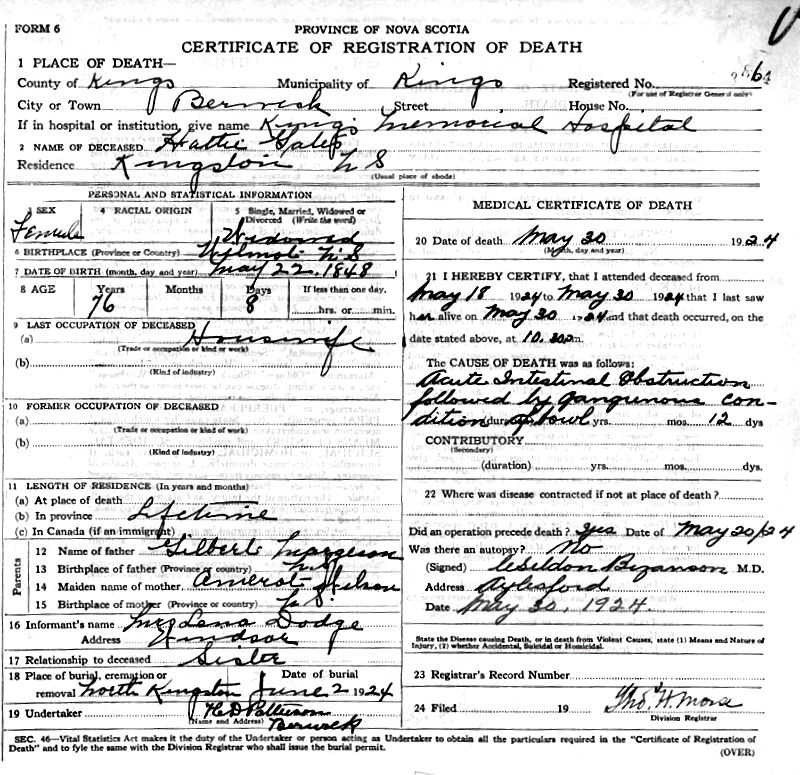 FORM 6
PROVINCE OF NOVA SCOTIA
CERTIFICATE OF REGISTRATION OF DEATH
1 PLACE OF DEATH—
County of Kings Municipality of Kings Registered No.
(For use of Registrar General only)
City or Town Berwick Street House No.
If in hospital or institution, give name Kings Memorial Hospital
2 NAME OF DECEASED Hattie Gates
Residence Kingston N S
(Usual place of abode)
PERSONAL AND STATISTICAL INFORMATION
3 SEX 4 RACIAL ORIGIN 5 Single, Married, Widowed or Divorced (Write the word)
Female Widowed
6 BIRTHPLACE (Province or Country) Wilmot N.S
7 DATE OF BIRTH (month, day and year) May 22, 1848
8 AGE Years Months Days If less than one day,
76 8 hrs. or min.
9 LAST OCCUPATION OF DECEASED
(a) Housewife
(Trade or occupation or kind or work)
(b)
(Kind of industry)
10 FORMER OCCUPATION OF DECEASED
(a)
(Trade or occupation or kind of work)
(b)
(Kind of industry)
11 LENGTH OF RESIDENCE (In years and months)
(a) At place of death
(b) In province Lifetime
(c) In Canada (if an immigrant)
Parents
12 Name of father Gilbert Margeson
13 Birthplace of father (Province or country) N.S
14 Maiden name of mother
15 Birthplace of mother (Province or country) N.S.
16 Informant's name Mrs Lena Dodge
Address Windsor
17 Relationship to deceased Sister
18 Place of burial, cremation or removal North Kingston Date of burial June 2 1924
19 Undertaker
(Name and Address) Berwick
MEDICAL CERTIFICATE OF DEATH
20 Date of death May 30 1924
(Month, day and year)
21 I HEREBY CERTIFY, that I attended deceased from
May 18 1924 to May 30 1924 that I last saw
her alive on May 30 1924 and that death occurred, on the
date stated above, at 10.30 p.m.
The CAUSE OF DEATH was as follows:
Acute Intestinal Obstruction
followed by gangrenous con-
dition of bowl (duration) yrs. mos. 12 dys
CONTRIBUTORY
(Secondary)
(duration) yrs. mos. dys.
22 Where was disease contracted if not at place of death?
Did an operation precede death? Yes Date of May 20/24
Was there an autopsy? No
(Signed) Weldon Bezanson M.D.
Address Aylesford
Date May 30, 1924.
State the Disease causing Death, or in death from Violent Causes, state (1) Means and Nature of
Injury, (2) whether Accidental, Suicidal or Homicidal.
23 Registrar's Record Number
24 Filed 19 Thos H. Morse
Division Registrar
SEC. 46—Vital Statistics Act makes it the duty of the Undertaker or person acting as Undertaker to obtain all the particulars required in the "Certificate of Registration of
Death" and to fyle the same with the Division Registrar who shall issue the burial permit.
(OVER)